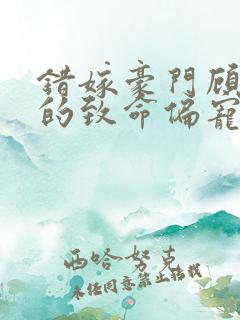 錯嫁豪門顾
的致命偏寵
西哈努克
未经同意禁止转载